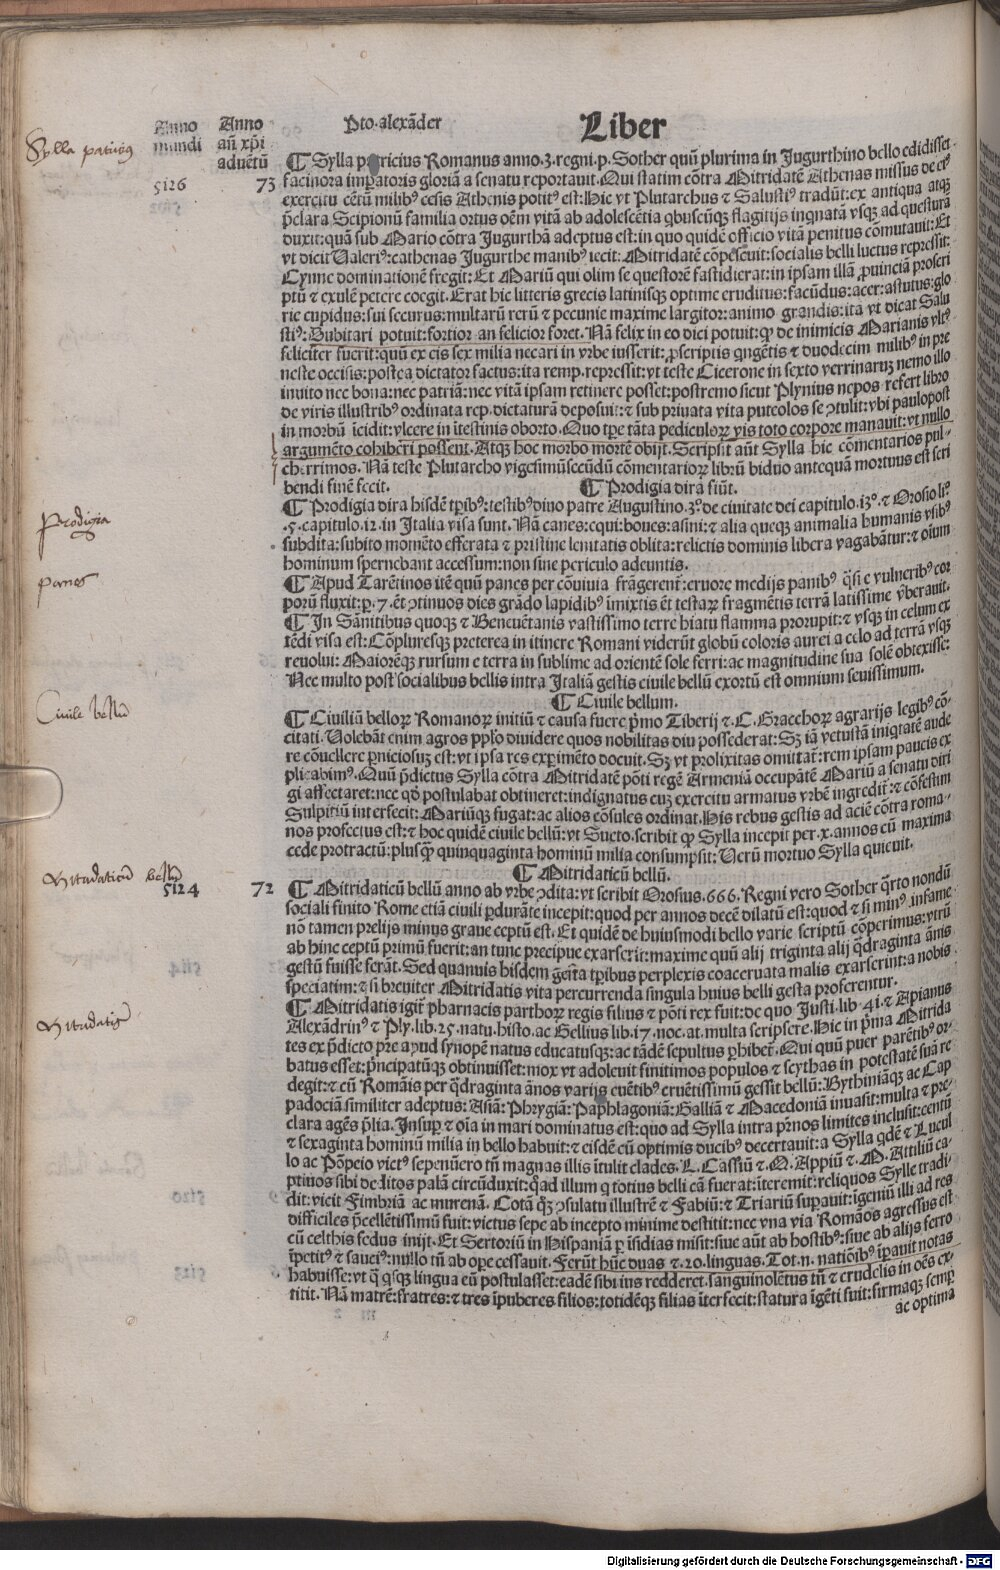 Anno mundi
Anno añ xp̃i aduẽtũ
Pto. alexãder
Liber
Sylla patricius
5126 73
¶ Sylla patricius Romanus anno .3. regni .p. Sother quũ plurima in Jugurthino bello edidisset
facinora imꝑatoris gloriã a senatu reportauit. Qui statim cõtra Mitridatẽ Athenas missus de eiꝰ
exercitu cẽtũ milibꝰ cesis Athenis potitꝰ est: Hic vt Plutarchus ⁊ Salustiꝰ tradũt: ex antiqua atqꝫ
p̃clara Scipionũ familia ortus oẽm vitã ab adolescẽtia qbuscũqꝫ flagitijs inqnatã vsqꝫ ad questurã
duxit: quã sub Mario cõtra Jugurthã adeptus est: in quo quidẽ officio vitã penitus cõmutauit: Et
vt dicit Ualeriꝰ: cathenas Jugurthe manibꝰ iecit: Mitridatẽ cõpescuit: socialis belli luctus repressit:
Cynne dominationẽ fregit: Et Mariũ qui olim se questorẽ fastidierat: in ipsam illã ꝓuinciã proscri
ptũ ⁊ exulẽ petere coegit. Erat hic litteris grecis latinisqꝫ optime eruditus: facũdus: acer: astutus: glo
rie cupidus: sui securus: multarũ rerũ ⁊ pecunie maxime largitor: animo grandis: ita vt dicat Salu
stiꝰ: Dubitari potuit: fortior an felicior foret. Nã felix in eo dici potuit: qꝫ de inimicis Marianis vltꝰ
feliciter fuerit: quũ ex eis sex milia necari in vrbe iusserit: ꝓscriptis qngẽtis ⁊ duodecim milibꝰ in pre
neste occisis: postea dictator factus: ita remp. repressit: vt teste Cicerone in sexto verrinarũ nemo illo
inuito nec bona: nec patriã: nec vitã ipsam retinere posset: postremo sicut Plynius nepos refert libro
de viris illustribꝰ ordinata rep. dictaturã deposuit: ⁊ sub priuata vita puteolos se ↄtulit: vbi paulopost
in morbũ ĩcidit: vlcere in ĩtestinis oborto. Quo tp̃e tãta pediculoꝝ vis toto corpore manauit: vt nullo
argumẽto cohiberi possent. Atqꝫ hoc morbo mortẽ obijt. Scripsit aũt Sylla hic cõmentarios pul-
cherrimos. Nã teste Plutarcho vigesimũsecũdũ cõmentarioꝝ librũ biduo antequã mortuus est scri
bendi finẽ fecit. ¶ Prodigia dira fiũt.
Prodigia
¶ Prodigia dira hisdẽ tp̃ibꝰ: testibꝰ diuo patre Augustino .3ꝰ. de ciuitate dei capitulo .13ꝰ. ⁊ Orosio liꝰ
.5. capitulo .12. in Italia visa sunt. Nã canes: equi: boues: asini: ⁊ alia queqꝫ animalia humanis vsibꝰ
subdita: subito momẽto efferata ⁊ pristine lenitatis oblita: relictis dominis libera vagabãtur: ⁊ oium
hominum spernebant accessum: non sine periculo adeuntis.
panes
¶ Apud Tarẽtinos itẽ quũ panes per cõuiuia frãgerentᷣ: cruore medijs panibꝰ q̃si e vulneribꝰ cor
porũ fluxit: p̱. 7. ẽt ↄtinuos dies grãdo lapidibꝰ ĩmixtis ẽt testaꝝ fragmẽtis terrã latissime vberauit.
¶ In Sãnitibus quoqꝫ ⁊ Beneuẽtanis vastissimo terre hiatu flamma prorupit: ⁊ vsqꝫ in celum ex
tẽdi visa est: Cõpluresqꝫ preterea in itinere Romani viderũt globũ coloris aurei a celo ad terrã vsqꝫ
reuolui: Maiorẽqꝫ rursum e terra in sublime ad orientẽ solẽ ferri: ac magnitudine sua solẽ obtexisse:
Nec multo post socialibus bellis intra Italiã gestis ciuile bellũ exortũ est omnium seuissimum.
¶ Ciuile bellum.
Ciuile bellũ
¶ Ciuiliũ belloꝝ Romanoꝝ initiũ ⁊ causa fuere p̃mo Tiberij ⁊ C. Gracchoꝝ agrarijs legibꝰ cõ-
citati. Uolebãt enim agros ppl̃o diuidere quos nobilitas diu possederat: Sꝫ iã vetustã iniqtatẽ aude
re cõuellere ꝑniciosuꝫ est: vt ipsa res exꝑimẽto docuit. Sꝫ vt prolixitas omittatᷣ: rem ipsam paucis ex
plicabimꝰ. Quũ p̃dictus Sylla cõtra Mitridatẽ põti regẽ Armeniã occupãtẽ Mariũ a senatu diri
gi affectaret: nec qd̃ postulabat obtineret: indignatus cuꝫ exercitu armatus vrbẽ ingreditᷣ: ⁊ cõfestim
Sulpitiũ interfecit: Mariũqꝫ fugat: ac alios cõsules ordinat. His rebus gestis ad aciẽ cõtra roma-
nos profectus est: ⁊ hoc quidẽ ciuile bellũ: vt Sueto. scribit qꝫ Sylla incepit per .x. annos cũ maxima
cede protractũ: plusqꝫ quinquaginta hominũ milia consumpsit: Uerũ mortuo Sylla quieuit.
¶ Mitridaticũ bellũ.
Mitridaticũ bellũ
5124 72
¶ Mitridaticũ bellũ anno ab vrbe ↄdita: vt scribit Orosius .666. Regni vero Sother q̃rto nondũ
sociali finito Rome etiã ciuili ꝑdurãte incepit: quod per annos decẽ dilatũ est: quod ⁊ si minꝰ infame
nõ tamen prelijs minus graue ceptũ est. Et quidẽ de huiusmodi bello varie scriptũ cõperimus: vtrũ
ab hinc ceptũ primũ fuerit: an tunc precipue exarserit: maxime quũ alij triginta alij q̃draginta ãnis
gestũ fuisse ferãt. Sed quamuis hisdem gesta tp̃ibus perplexis coaceruata malis exarserint: a nobis
speciatim: ⁊ si breuiter Mitridatis vita percurrenda singula huius belli gesta proferentur.
Mitridatis
¶ Mitridatis igitᷣ pharnacis parthoꝝ regis filius ⁊ põti rex fuit: de quo Justi. lib. 41. ⁊ Apianus
Alexãdrinꝰ ⁊ Ply. lib. 25. natu. histo. ac Gellius lib. 17. noc. at. multa scripsere. Hic in p̃ma Mitrida
tes ex p̃dicto p̃re apud synopẽ natus educatusqꝫ: ac tãdẽ sepultus ꝑhibetᷣ. Qui quũ puer parẽtibꝰ or-
batus esset: p̃ncipatũqꝫ obtinuisset: mox vt adoleuit finitimos populos ⁊ scythas in potestatẽ suã re
degit: ⁊ cũ Romãis per q̃draginta ãnos varijs euẽtibꝰ cruẽtissimũ gessit bellũ: Bythiniãqꝫ ac Cap
padociã similiter adeptus: Asiã: Phrygiã: Paphlagoniã: Galliã ⁊ Macedoniã inuasit: multa ⁊ pre-
clara agẽs p̃lia. Insuꝑ ⁊ oĩa in mari dominatus est: quo ad Sylla intra p̃rnos limites inclusit: centũ
⁊ sexaginta hominũ milia in bello habuit: ⁊ eisdẽ cũ optimis ducibꝰ decertauit: a Sylla qdẽ ⁊ Lucul
lo ac Põpeio victꝰ sepenũero tñ magnas illis ĩtulit clades. L. Cassiũ ⁊ .Q. Appiũ ⁊ .M. Attiliũ ca-
ptiuos sibi deditos palã circũduxit: q̃d ad illum q totius belli cã fuerat: ĩteremit: reliquos Sylle tradi
dit: vicit Fimbriã ac murenã. Cotã q̃qꝫ ↄsulatu illustrẽ ⁊ Fabiũ: ⁊ Triariũ suꝑauit: ĩgeniũ illi ad res
difficiles p̃cellẽtissimũ fuit: victus sepe ab incepto minime destitit: nec vna via Romãos agressus est
cũ celthis fedus inijt. Et Sertoriũ in Hispaniã ꝑ ĩsidias misit: siue aũt ab hostibꝰ: siue ab alijs ferro
ĩpetitꝰ ⁊ sauciꝰ: nullo tñ ab oꝑe cessauit. Ferũt hũc duas ⁊ .20. linguas. Tot .n. natiõibꝰ ĩꝑauit notas
habuisse: vt q̃ qsqꝫ lingua eũ postulasset: eadẽ sibi ius redderet. sanguinolẽtus tñ ⁊ crudelis in oẽs ex-
titit. Nã matrẽ: fratres: ⁊ tres ĩpuberes filios: totidẽqꝫ filias ĩterfecit: statura ĩgẽti fuit: firmaqꝫ semꝑ
ac optima
Digitalisierung gefördert durch die Deutsche Forschungsgemeinschaft - DFG